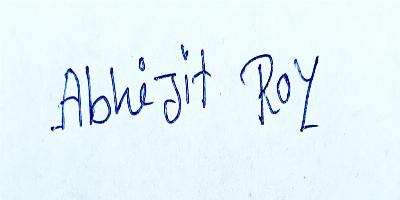 Abhijit Roy